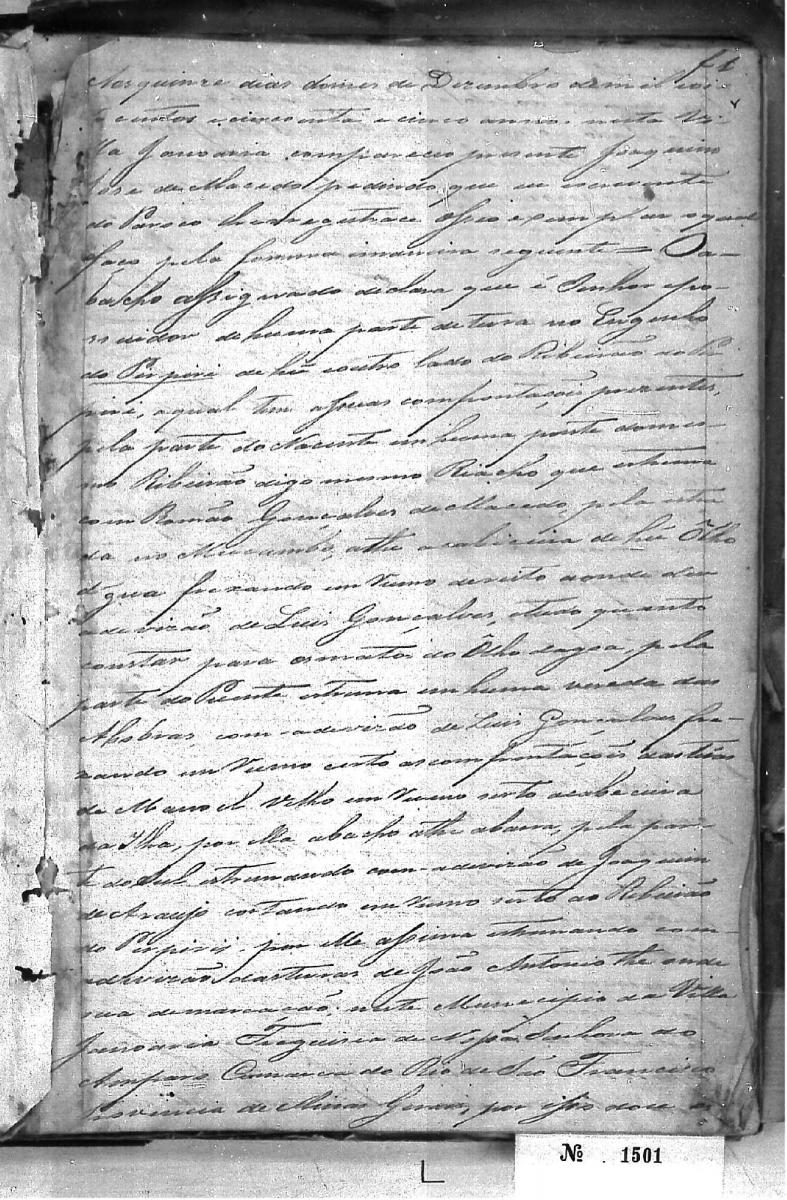 f 1
Aos quinze dias do mes de Dezembro de mil oito
centos e cincoenta e cinco annos nesta Vi-
lla Januaria compareceo prezente Joaquim
Jose de Macedo pedindo, que eu escrevente
do Paroco lhe registrace o seo exemplar o qual
faço pela forma maneira seguinte = O a-
bacho assignado declara que é Senhor epo-
ssuidor de huma parte de terra no Engenho
do Perpiri de hú e outro lado do Ribeirão do Pi
piri, a qual tem as suas comfrontaçois prezentes,
pela parte do Nacente em huma ponte do mes-
mo Ribeirão digo mesmo Riacho, que estrema
com Romão Gonçalves de Macedo, pela estra
da no Mucambo, athe a cabiceira de hú Ôlho
d'gua frezando em Rumo dereito aonde deu
a devizão de Luis Gonçalves, e tudo quanto
constar para os matos do Ôlho dagoa, pela
parte do Poente estrema em huma vereda das
Abobras, com a devizão de Luis Gonçalves fre-
zando em Rumo certo as comfrontaçois das terras
de Manoel Velho em Rumo serto a cabeceira
da Ilha, por ella abacho athe abarra, pela par-
te do Sul estremando com a devizão de Joaquim
de Araujo cortando em Rumo serto ao Ribeirão
do Perpiri, por elle assima estremando com
a devizão das terras de João Antonio the onde
sua demarcação neste Municipio da Villa
Januaria Freguezia de Nossa Senhora do
Amparo Comarca do Rio de São Francisco
Provincia de Minas Geraes, por isso dou e
Nº 1501